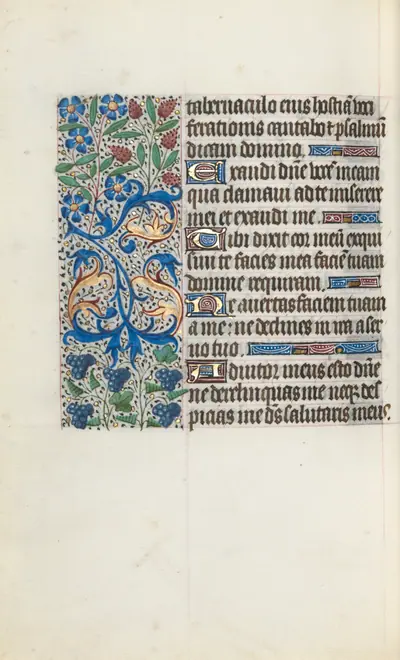 tabernaculo eius hostiā voci
ferationis cantabo ⁊ psalmū
dicam domino.
Exaudi dn̄e vocē meam
qua clamaui ad te miserere
mei et exaudi me.
Tibi dixit cor meū exqui
siui te facies mea faciē tuam
domine requiram.
Ne auertas faciem tuam
a me: ne declines in ira a ser
uo tuo.
Adiutor meus esto dn̄e
ne derelinquas me neqꝫ des
picias me ds̄ salutaris meus.